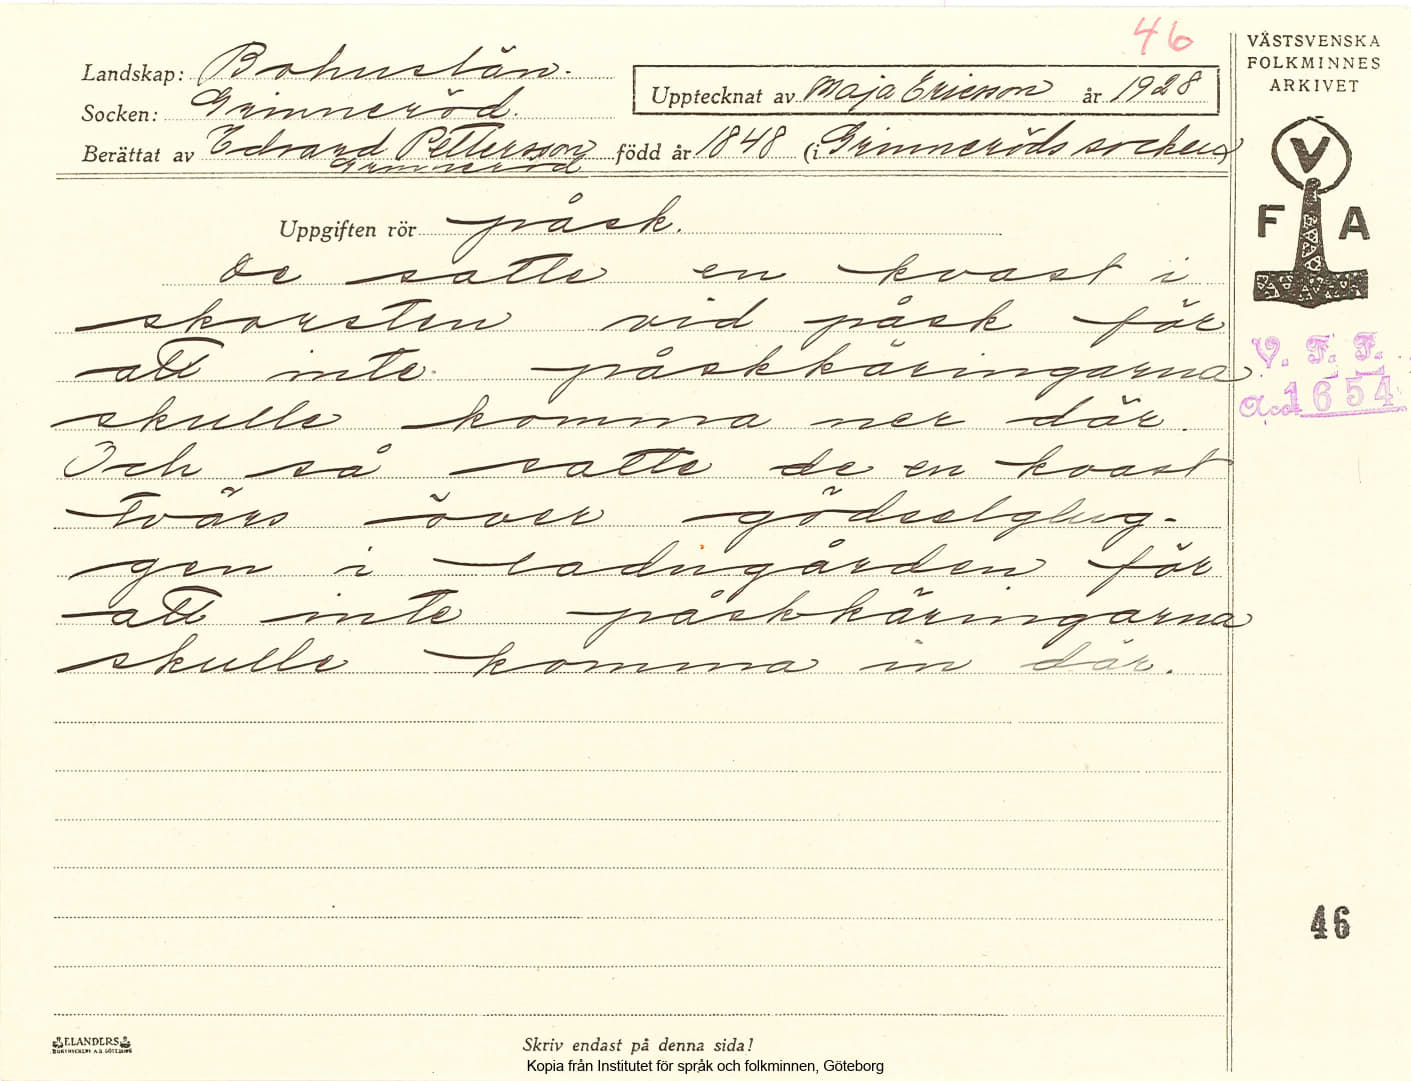 46
VÄSTSVENSKA
FOLKMINNES
ARKIVET
Landskap: Bohuslän.
Socken: Grinneröd.
Upptecknat av Maja Ericson år 1928
Berättat av Edvard Pettersson född år 1848 (i Grinneröds socken)
Grinneröd
V
F A
Uppgiften rör påsk.
De satte en kvast i
skorsten vid påsk för
att inte påskkäringarna
skulle komma ner där.
Och så satte de en kvast
tvärs över gödselglug-
gen i ladugården för
att inte påskkäringarna
skulle komma in där.
V. F. F.
Acc. 1654
46
ELANDERS
BOKTRYCKERI A.B. GÖTEBORG
Skriv endast på denna sida!
Kopia från Institutet för språk och folkminnen, Göteborg